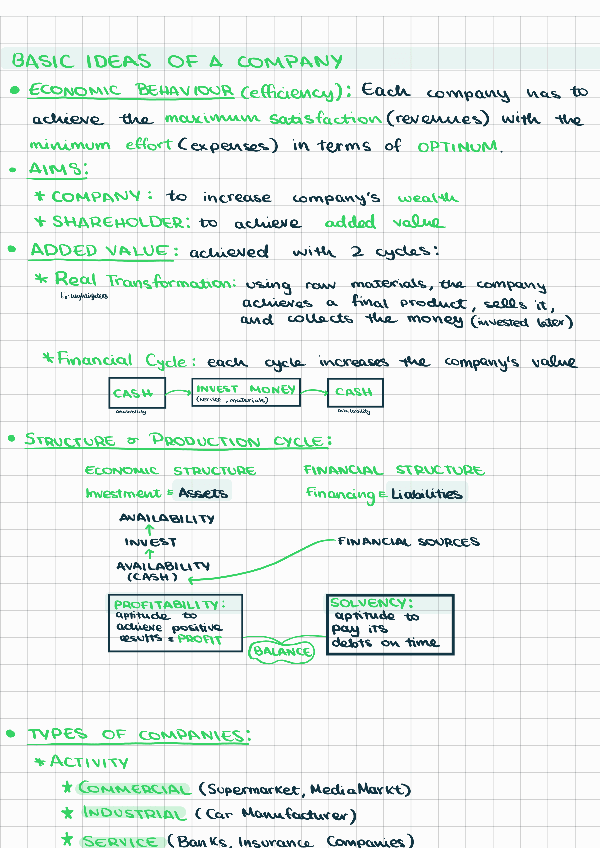 BASIC IDEAS OF A COMPANY
• ECONOMIC BEHAVIOUR (efficiency): Each company has to
achieve the maximum satisfaction (revenues) with the
minimum effort (expenses) in terms of OPTIMUM.
• AIMS:
* COMPANY: to increase company's wealth
* SHAREHOLDER: to achieve added value
• ADDED VALUE: achieved with 2 cycles:
* Real Transformation: using raw materials, the company
achieves a final product, sells it,
and collects the money (invested later)
* Financial Cycle: each cycle increases the company's value
CASH → INVEST MONEY → CASH
(service, materials)
availability availability
• STRUCTURE & PRODUCTION CYCLE:
ECONOMIC STRUCTURE FINANCIAL STRUCTURE
Investment = Assets Financing = Liabilities
AVAILABILITY
↑
INVEST FINANCIAL SOURCES
↑
AVAILABILITY
(CASH)
PROFITABILITY: SOLVENCY:
aptitude to aptitude to
achieve positive pay its
results = PROFIT debts on time
BALANCE
• TYPES OF COMPANIES:
* ACTIVITY
* COMMERCIAL (Supermarket, MediaMarkt)
* INDUSTRIAL (Car Manufacturer)
* SERVICE (Banks, Insurance Companies)